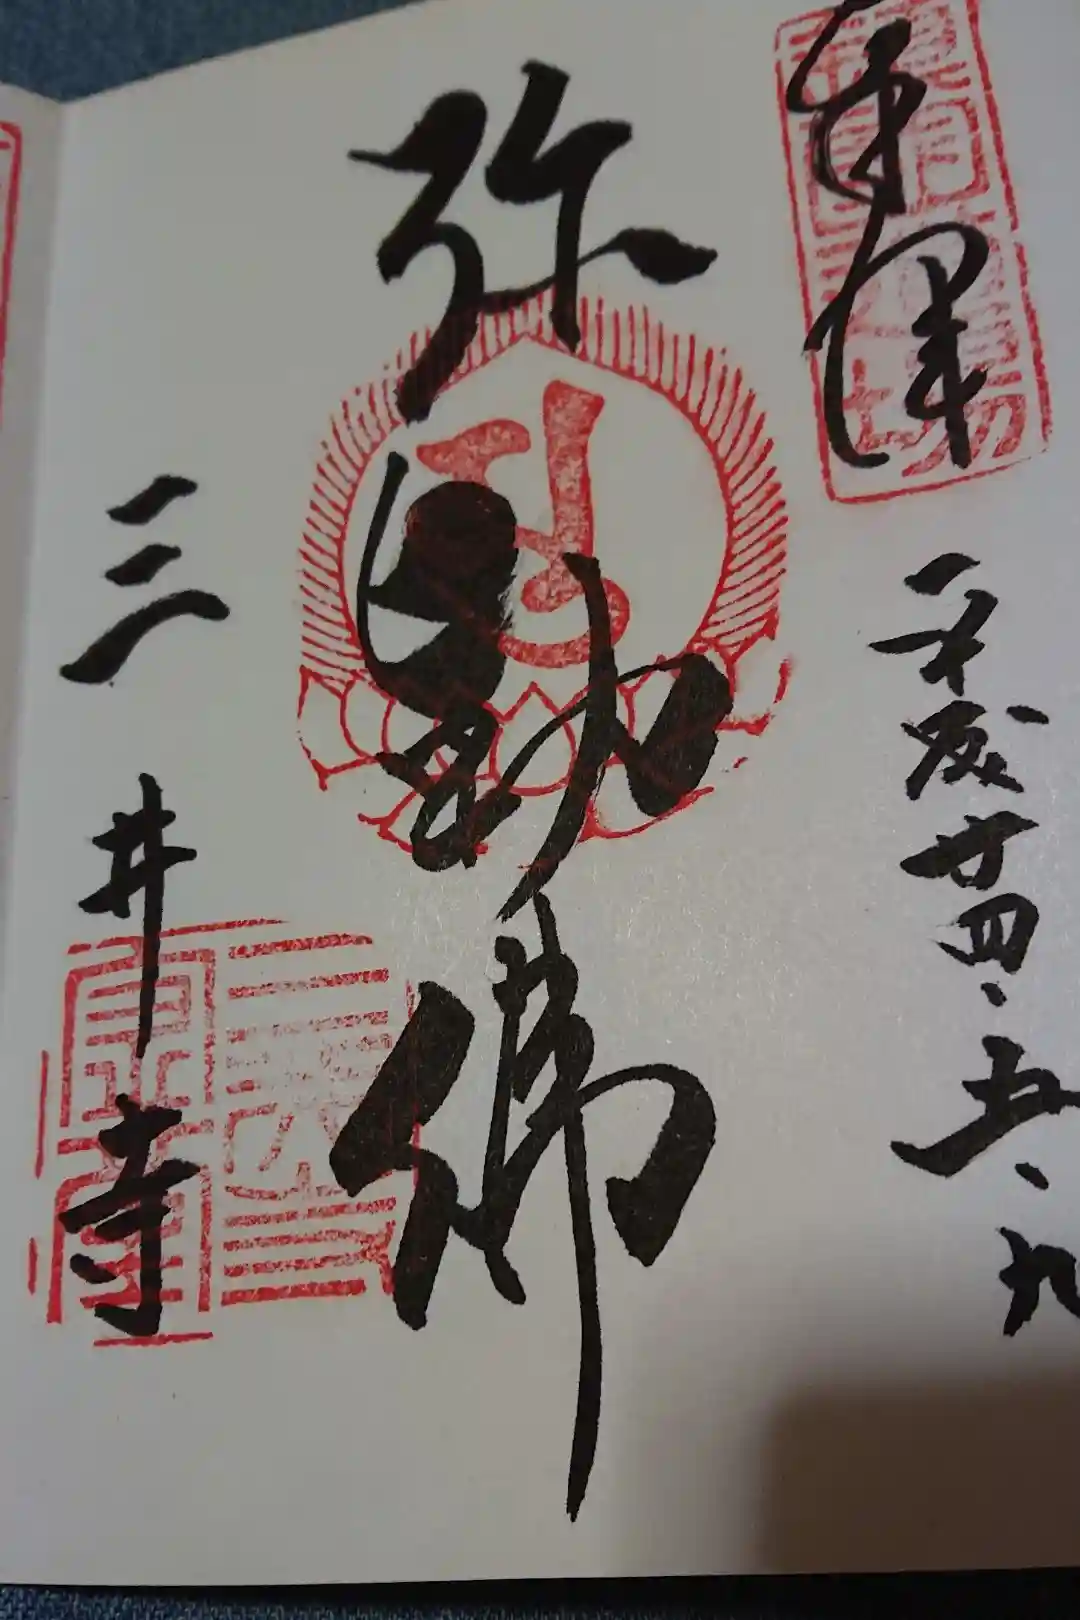 奉拝
平成廿四、五、九
弥勒佛
三井寺